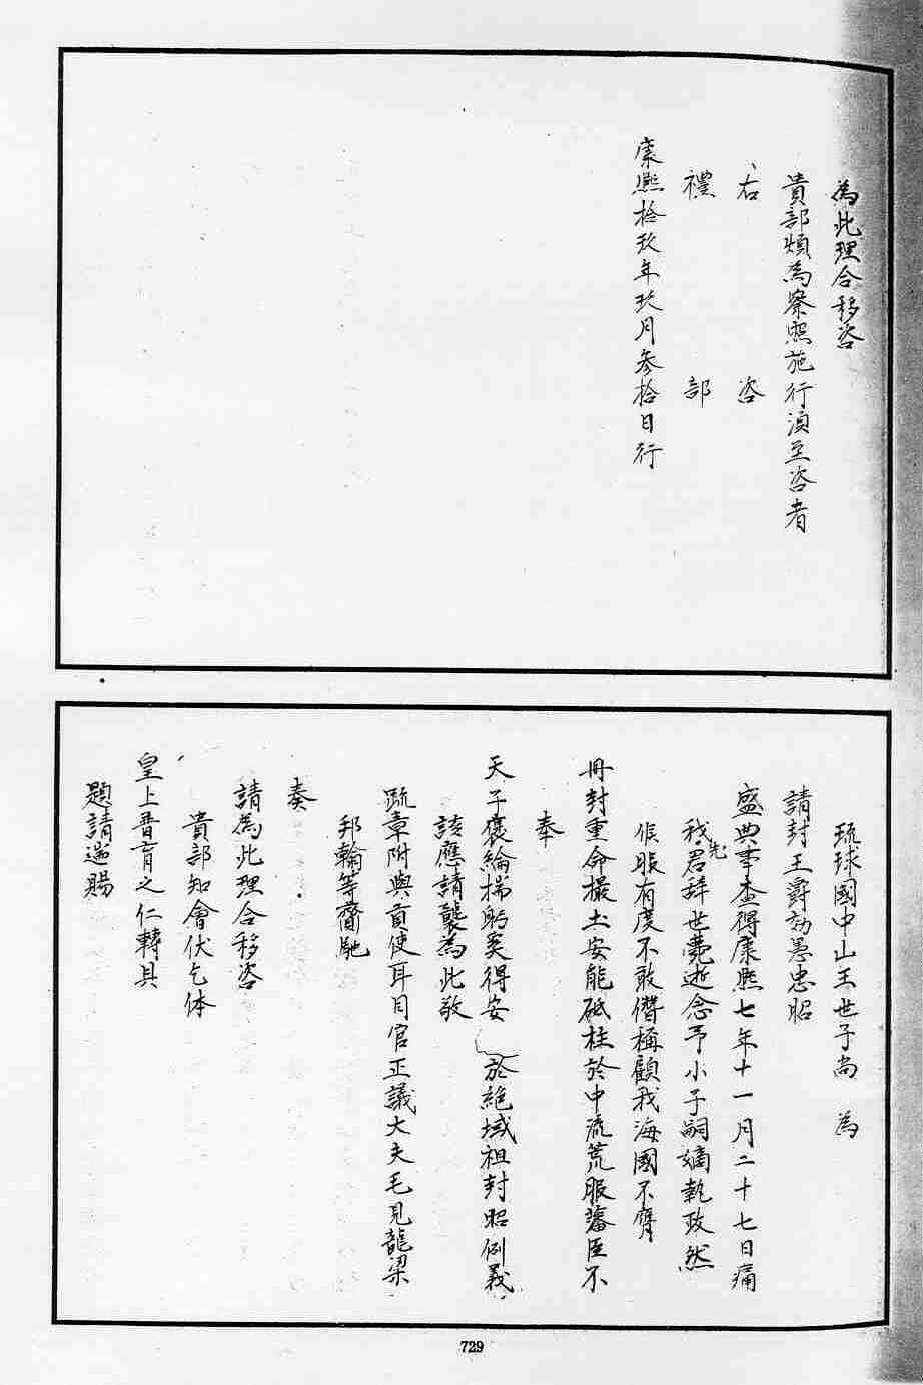 為此理合移咨
貴部煩為察照施行須至咨者
右咨
禮部
康熙拾玖年玖月參拾日行
琉球國中山王世子尚 為
請封王爵効愚忠昭
盛典事查得康熙七年十一月二十七日痛
我先君辞世薨逝念予小子嗣嫡執政然
候服有度不敢僭稱顧我海國不膺
冊封重命撮土安能砥柱於中流荒服藩臣不
奉
天子褒綸揣躬奚得安於絶域祖封昭例義
該應請襲為此敬
疏章附與貢使耳目官正議大夫毛見龍梁
邦翰等齎馳
奏
請為此理合移咨
貴部知會伏乞体
皇上普育之仁轉具
題請遄賜
729